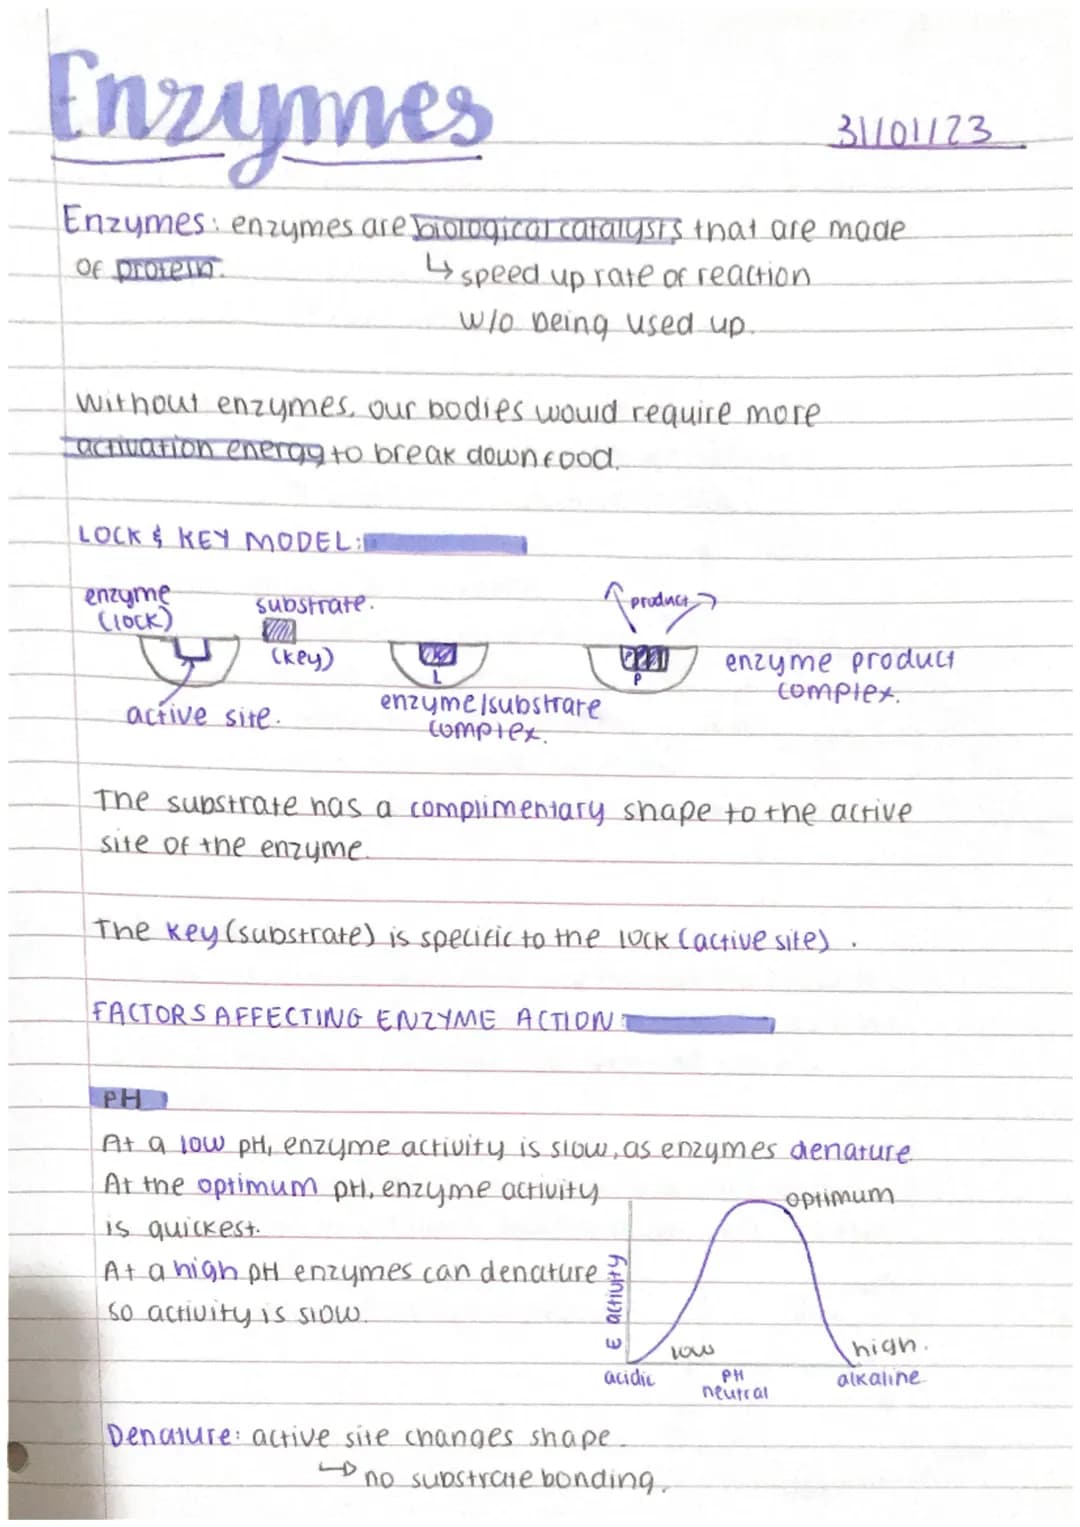 Enzymes
31/01/23
Enzymes: enzymes are biological catalysts that are made
of protein.
↳ speed up rate of reaction
w/o being used up.
Without enzymes, our bodies would require more
activation energy to break down food.
LOCK & KEY MODEL:
enzyme
(lock)
substrate.
(key)
active site.
L
enzyme/substrate
complex.
product
P
enzyme product
complex.
The substrate has a complimentary shape to the active
site of the enzyme.
The key (substrate) is specific to the lock (active site).
FACTORS AFFECTING ENZYME ACTION:
PH
At a low pH, enzyme activity is slow, as enzymes denature
At the optimum pH, enzyme activity
is quickest.
At a high pH enzymes can denature
so activity is slow.
E activity
optimum
low
high.
acidic
PH
neutral
alkaline
Denature: active site changes shape.
↳ no substrate bonding.